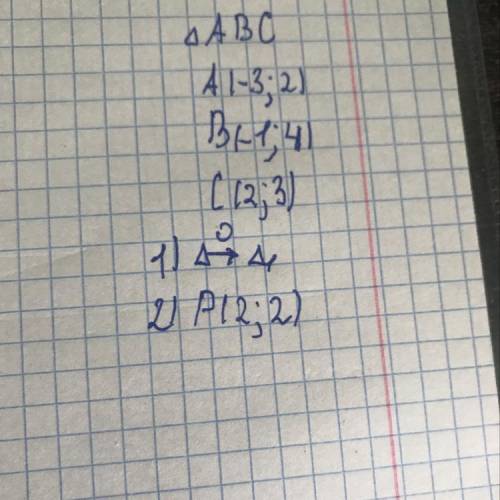 △ABC
A(-3; 2)
B(-1; 4)
C(2; 3)
1) △ →ᴼ △₁
2) P(2; 2)